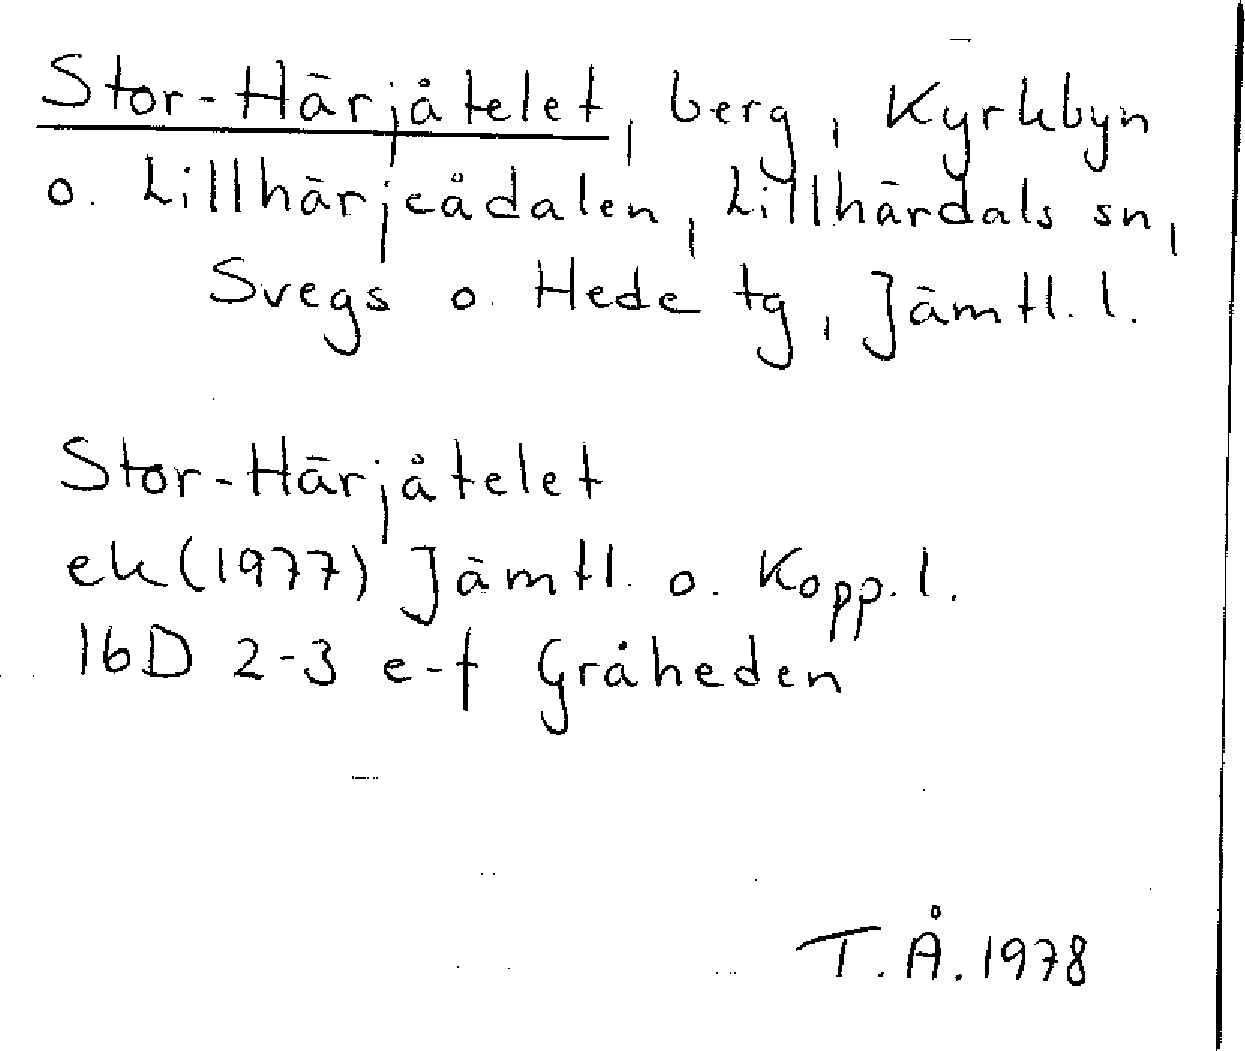 Stor-Härjåtelet, berg, Kyrkbyn
o. Lillhärjeådalen, Lillhärdals sn,
Svegs o. Hede tg, Jämtl. l.
Stor-Härjåtelet
ek (1977) Jämtl. o. Kopp. l.
16D 2-3 e-f Gråheden
T. Å. 1978